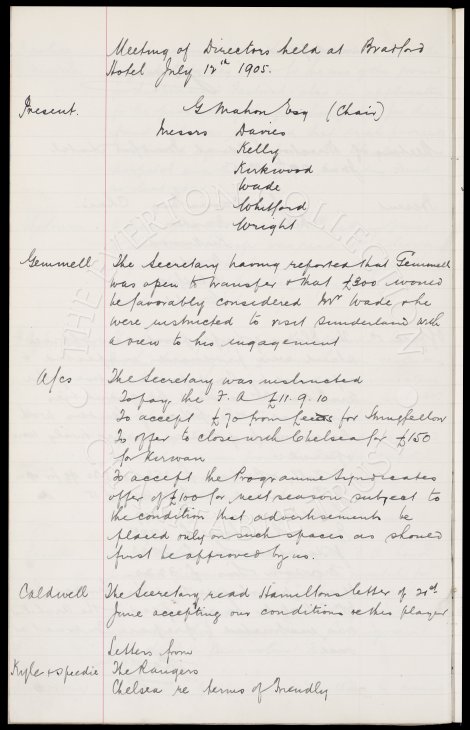 Meeting of Directors held at Bradford
Hotel July 12th 1905.
Present. G Mahon Esq (Chair)
Messrs Davies
Kelly
Kirkwood
Wade
Whitford
Wright
Gemmell The Secretary having reported that Gemmell
was open to transfer & that £300 would
be favorably considered Mr Wade & he
were instructed to visit Sunderland with
a view to his engagement
A/cs The Secretary was instructed
To pay the F. A £11. 9. 10
To accept £70 from Leeds for Stringfellow
To offer to close with Chelsea for £150
for Kirwan
To accept the Programme Syndicates
offer of £100 for next season subject to
the condition that advertisements be
placed only on such spaces as should
first be approved by us.
Caldwell The Secretary read Hamiltons letter of 21st
June accepting our conditions re this player
Letters from
Kyle & Speedie The Rangers
Chelsea re terms of friendly
THE EVERTON COLLECTION